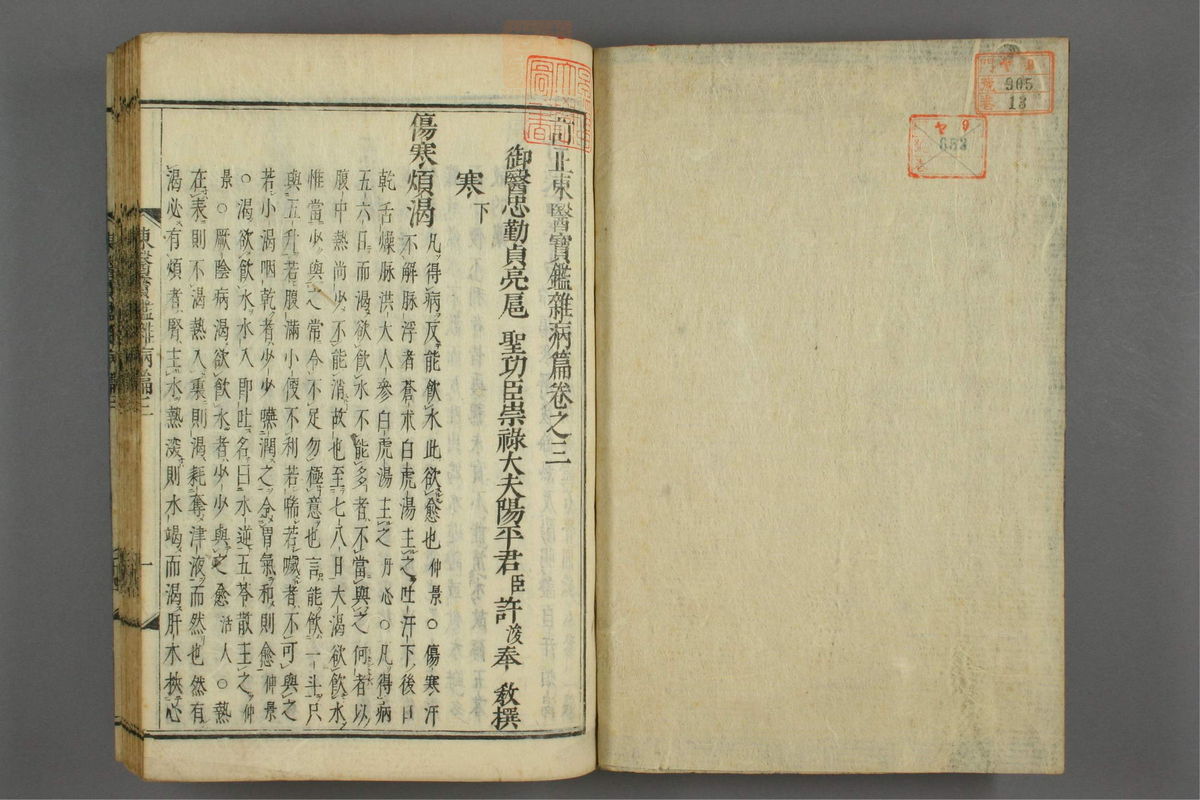 訂正東醫寶鑑雜病篇卷之三
御醫忠勤貞亮扈 聖功臣崇祿大夫陽平君臣許浚奉 敎撰
寒下
傷寒煩渴 凡得病反能飮水此欲愈也仲景○傷寒汗
不解脉浮者蒼朮白虎湯主之吐汗下後口
乾舌燥脉洪大人參白虎湯主之丹心○凡得病
五六日而渴欲飮水不能多者不當與之何者以
腹中熱尙少不能消故也至七八日大渴欲飮水
惟當少與之常令不足勿極意也言能飮一斗只
與五升若腹滿小便不利若喘若噦者不可與之
若小渴咽乾者少少嚥潤之令胃氣和則愈仲景
○渴欲飮水水入卽吐名曰水逆五苓散主之仲
景○厥陰病渴欲飮水者少少與之愈活人○熱
在表則不渴熱入裏則渴耗奪津液而然也然有
渴必有煩者腎主水熱深則水竭而渴肝木挾心
東醫寶鑑雜病篇三
一
905
13
ヤ 9
653